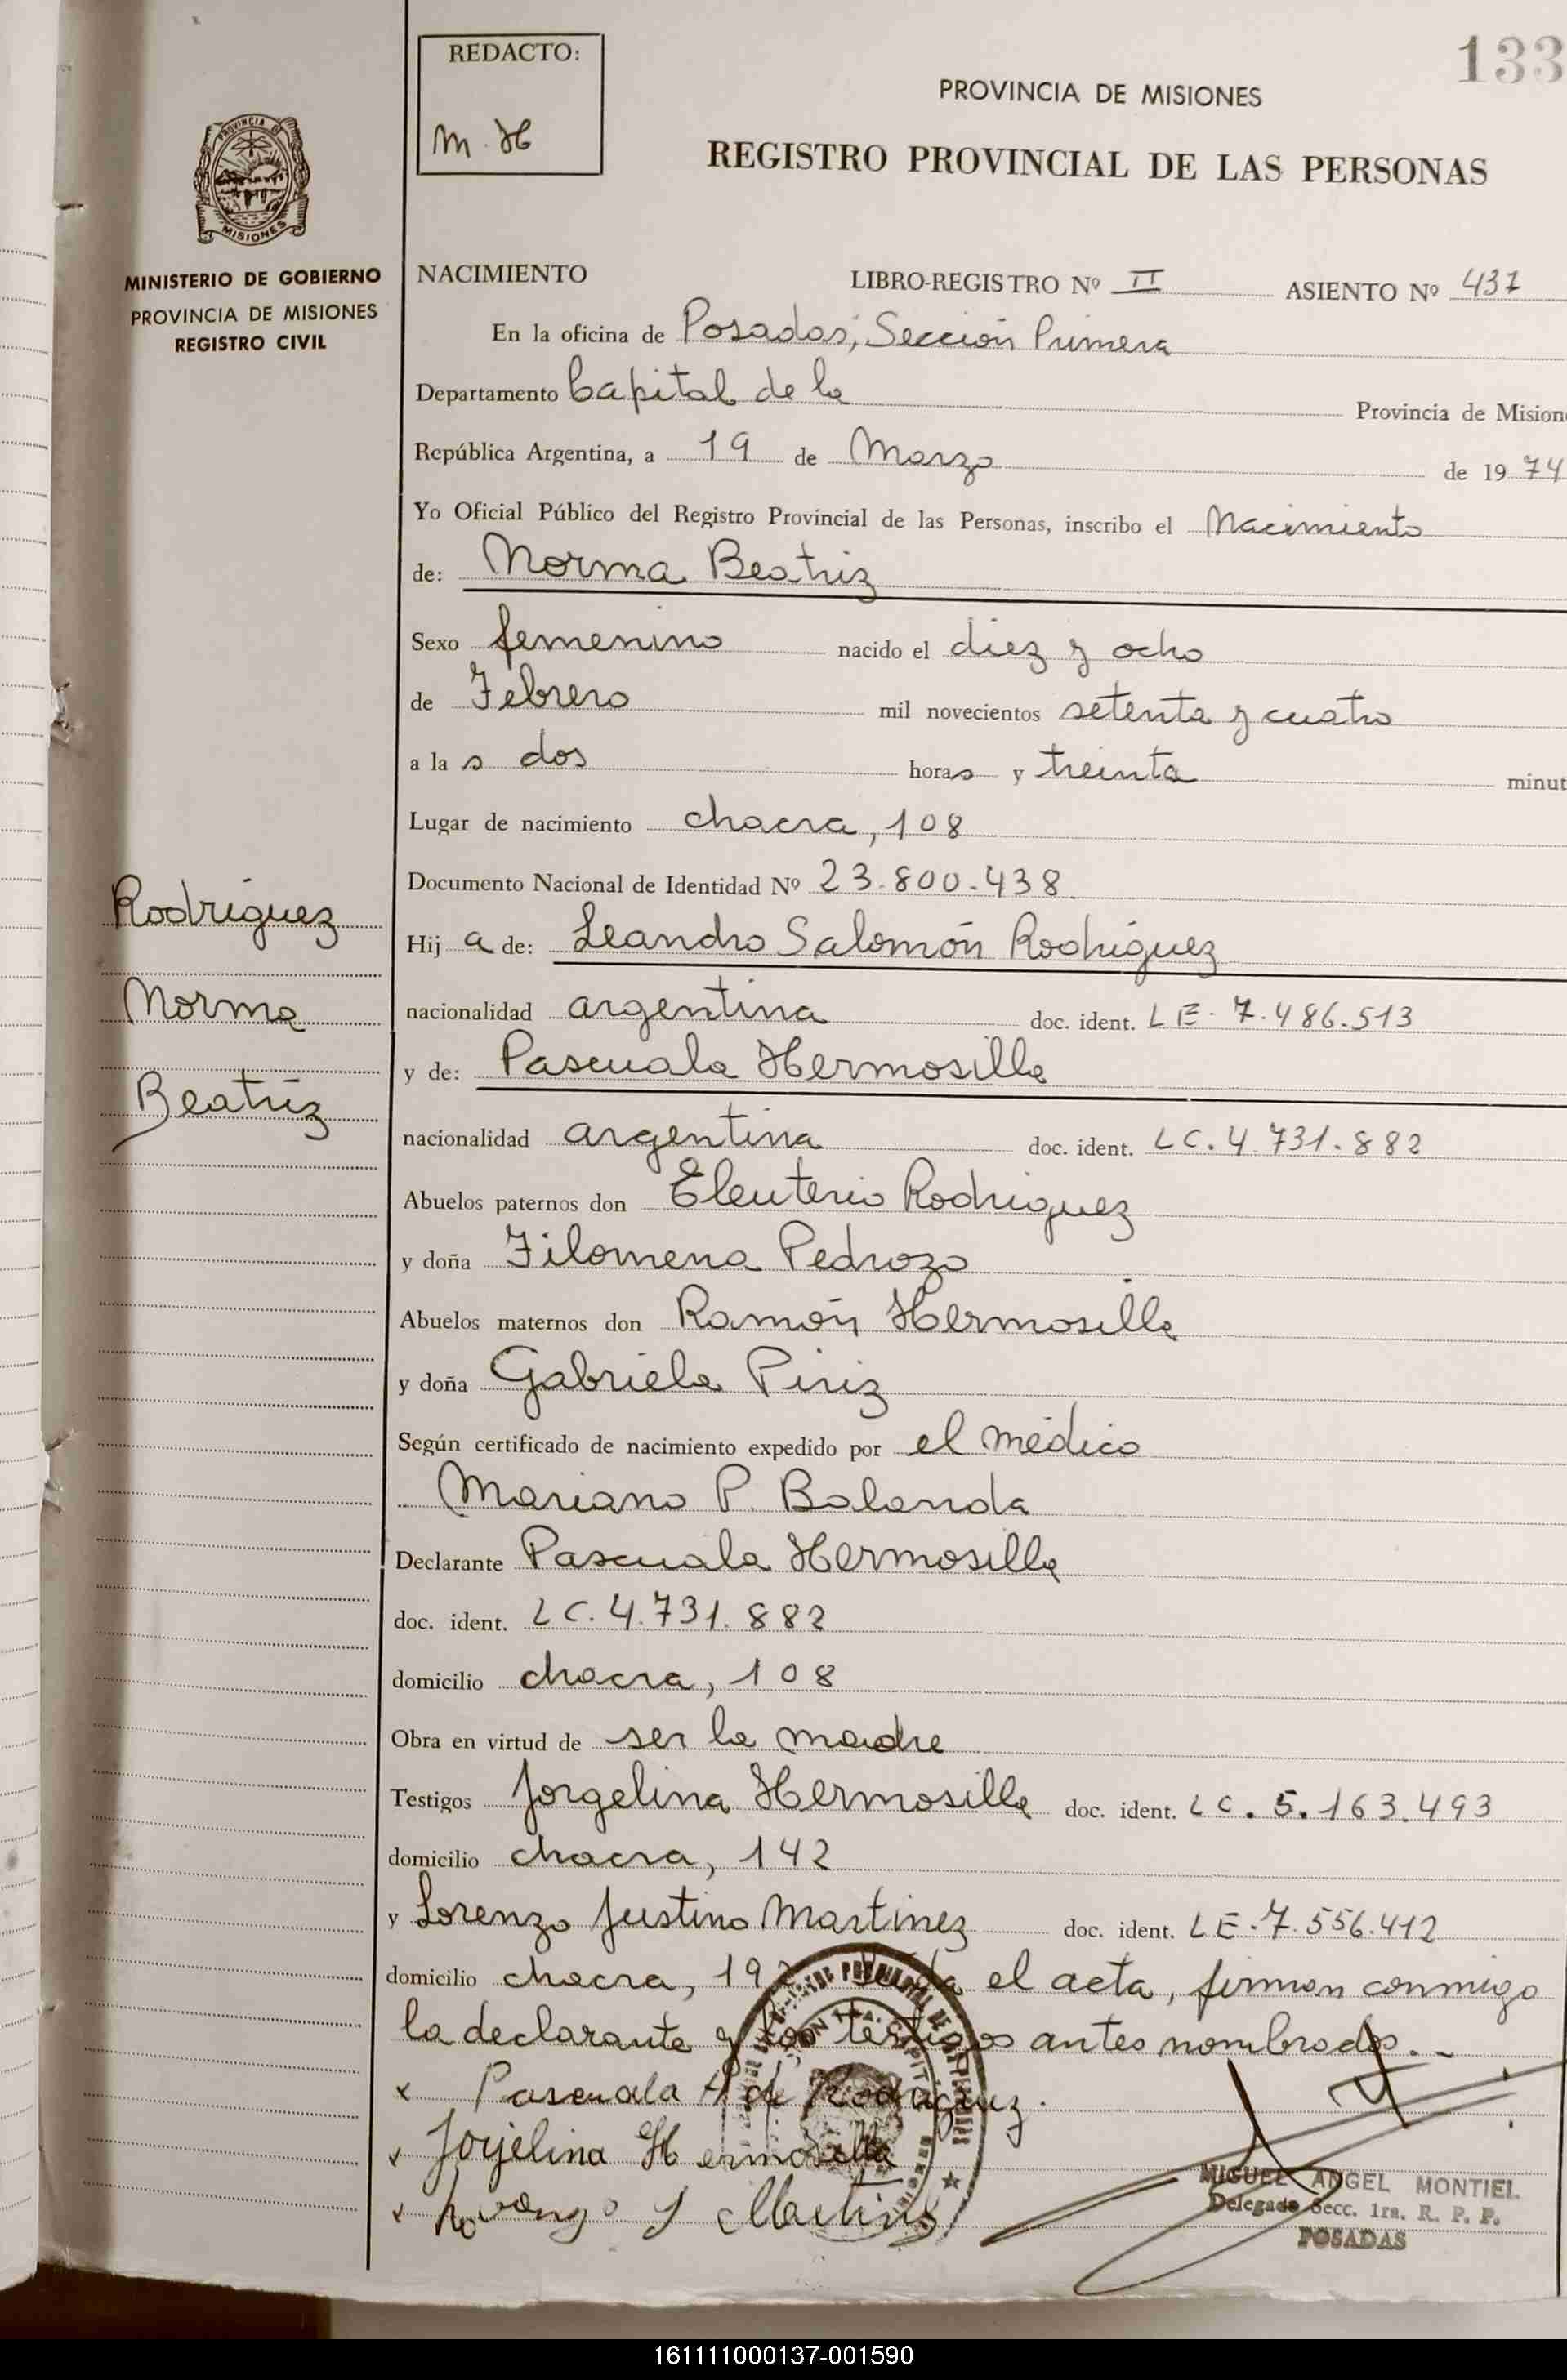 133
REDACTO:
M. H
PROVINCIA DE MISIONES
REGISTRO PROVINCIAL DE LAS PERSONAS
PROVINCIA DE
MISIONES
MINISTERIO DE GOBIERNO
PROVINCIA DE MISIONES
REGISTRO CIVIL
NACIMIENTO LIBRO-REGISTRO Nº II ASIENTO Nº 437
En la oficina de Posadas, Sección Primera
Departamento Capital de la Provincia de Mision
República Argentina, a 19 de Marzo de 1974
Yo Oficial Público del Registro Provincial de las Personas, inscribo el Nacimiento
de: Norma Beatriz
Sexo femenino nacido el diez y ocho
de Febrero mil novecientos setenta y cuatro
a la s dos horas y treinta minut
Lugar de nacimiento chacra, 108
Documento Nacional de Identidad Nº 23.800.438
Rodriguez
Norma
Beatriz
Hij a de: Leandro Salomón Rodriguez
nacionalidad argentina doc. ident. LE. 7.486.513
y de: Pascuala Hermosilla
nacionalidad argentina doc. ident. LC. 4.731.882
Abuelos paternos don Eleuterio Rodriguez
y doña Filomena Pedrozo
Abuelos maternos don Ramón Hermosilla
y doña Gabriela Piriz
Según certificado de nacimiento expedido por el médico
Mariano P. Balanda
Declarante Pascuala Hermosilla
doc. ident. LC. 4.731.882
domicilio chacra, 108
Obra en virtud de ser la madre
Testigos Jorgelina Hermosilla doc. ident. LC. 5.163.493
domicilio chacra, 142
y Lorenzo Justino Martinez doc. ident. LE. 7.556.412
domicilio chacra, 192 el acta, firman conmigo
la declarante y los testigos antes nombrados.
x Pascuala H de Rodriguez.
x Jorjelina Hermosilla
x Lorenzo J Martinez
MIGUEL ANGEL MONTIEL
Delegado Secc. 1ra. R. P. P.
POSADAS
161111000137-001590